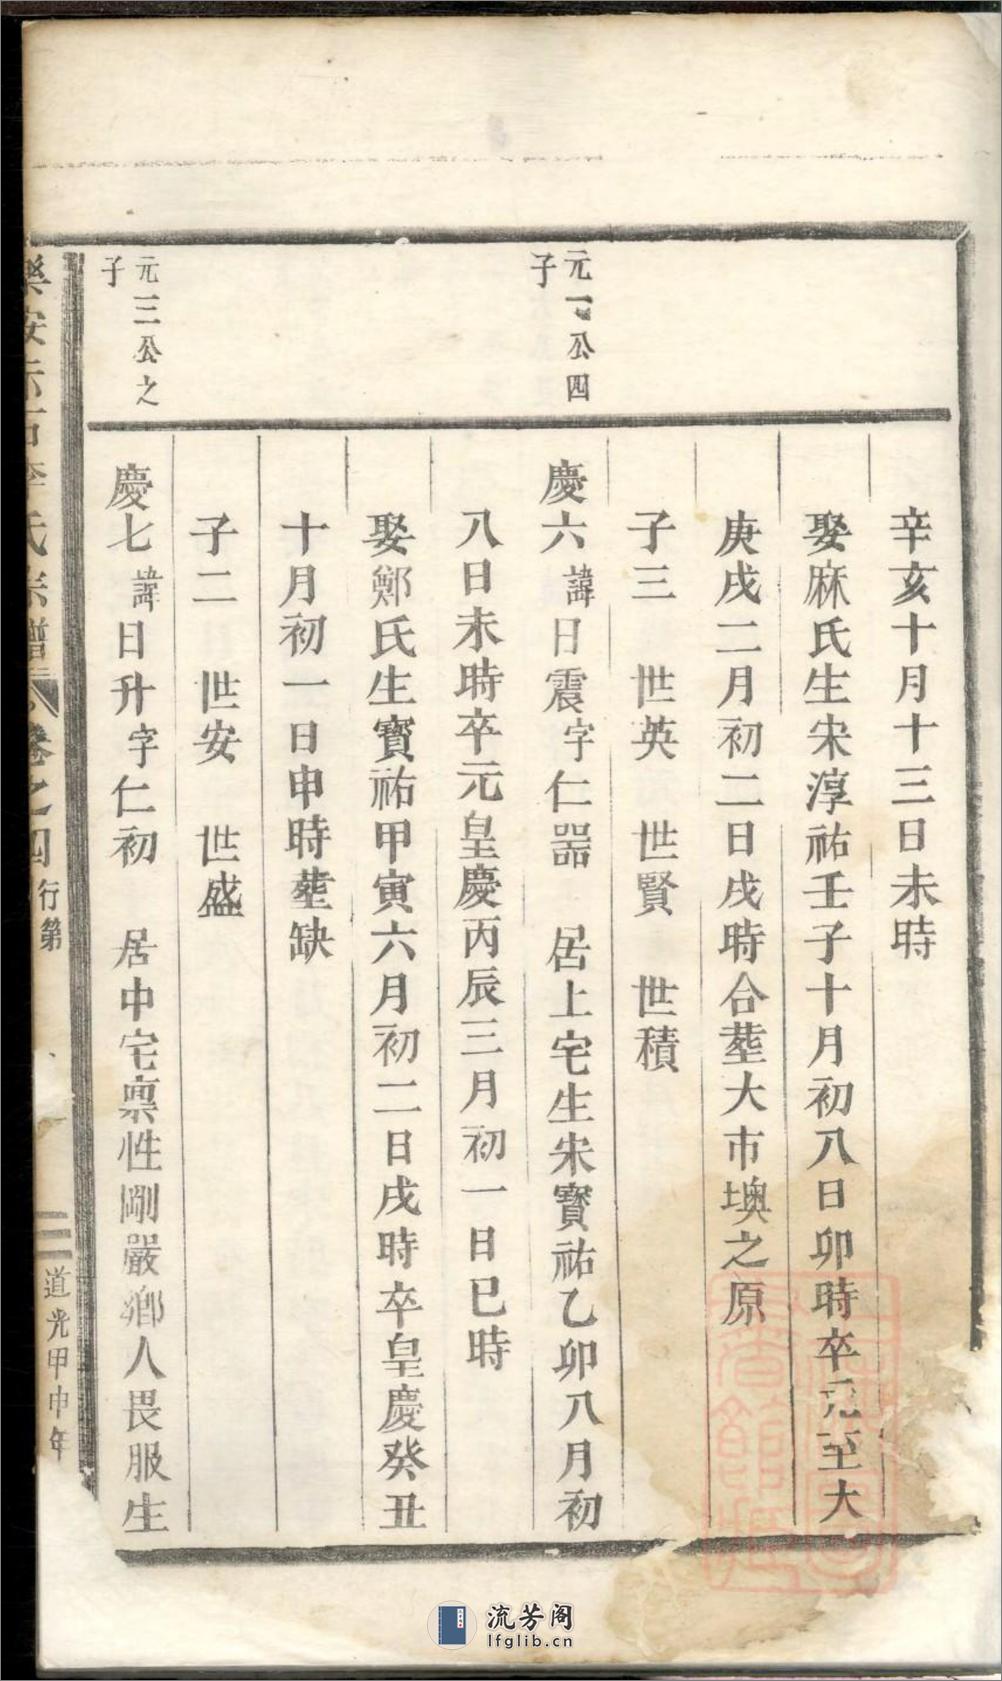 辛亥十月十三日未時
娶麻氏生宋淳祐壬子十月初八日卯時卒元至大
庚戌二月初二日戌時合塟大市墺之原
子三　世英　世賢　世積
元一公四
子
慶六諱日震字仁器　居上宅生宋寳祐乙卯八月初
八日未時卒元皇慶丙辰三月初一日巳時
娶鄭氏生寳祐甲寅六月初二日戌時卒皇慶癸丑
十月初一日申時塟缺
子二　世安　世盛
元三公之
子
慶七諱日升字仁初　居中宅禀性剛嚴鄉人畏服生
樂安示石李氏宗譜　卷之四　行第　三　道光甲申年
流芳阁
lfglib.cn